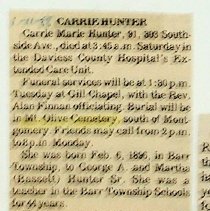 CARRIE HUNTER
Carrie Marie Hunter, 91, 303 South-
side Ave., died at 3:45 a.m. Saturday in
the Daviess County Hospital's Ex-
tended Care Unit.
Funeral services will be at 1:30 p.m.
Tuesday at Gill Chapel, with the Rev.
Alan Finnan officiating. Burial will be
in Mt. Olive Cemetery south of Mont-
gomery. Friends may call from 2 p.m.
to 8 p.m. Monday.
She was born Feb. 6, 1896, in Barr
Township, to George A. and Martha
(Bassett) Hunter Sr. She was a
teacher in the Barr Township Schools
for 44 years.